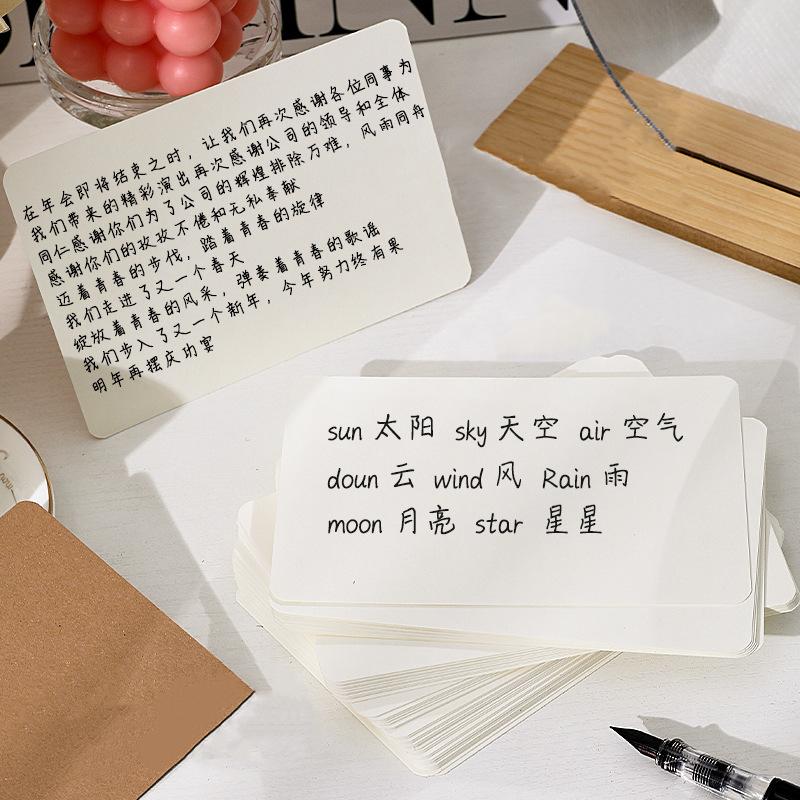 在年会即将结束之时，让我们再次感谢各位同事为
我们带来的精彩演出再次感谢公司的领导和全体
同仁感谢你们为了公司的辉煌排除万难，风雨同舟
感谢你们的孜孜不倦和无私奉献
迈着青春的步伐，踏着青春的旋律
我们走进了又一个春天
绽放着青春的风采，弹奏着青春的歌谣
我们步入了又一个新年，今年努力终有果
明年再摆庆功宴
sun 太阳 sky 天空 air 空气
doun 云 wind 风 Rain 雨
moon 月亮 star 星星